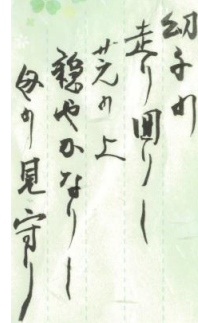 幼子の
走り回りし
芝の上
穏やかなりし
母の見守り